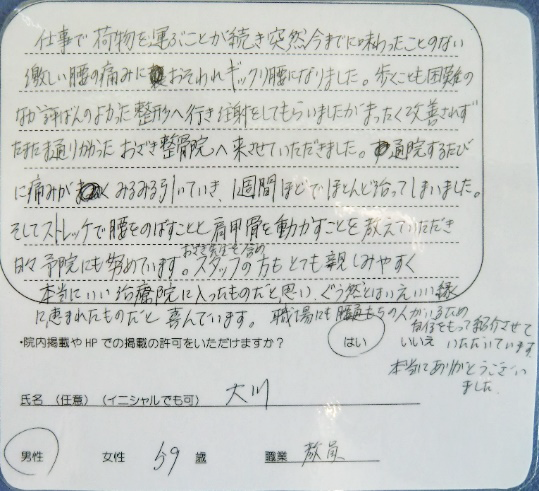 仕事で荷物を運ぶことが続き突然今までに味わったことのない
激しい腰の痛みにおそわれギックリ腰になりました。歩くことも困難の
なか評ばんのよかった整形へ行き注射をしてもらいましたがまったく改善されず
たまたま通りかかったおざき整骨院へ来させていただきました。通院するたび
に痛みがみるみる引いていき、1週間ほどでほとんど治ってしまいました。
そしてストレッチで腰をのばすことと肩甲骨を動かすことを教えていただき
日々予防にも努めています。おざき先生も含めスタッフの方もとても親しみやすく
本当にいい治療院に入ったものだと思い、ぐう然とはいえいい縁
に恵まれたものだと喜んでいます。職場にも腰痛もちの人がいるため
自信をもって紹介させて
いただいています
本当にありがとうござい
ました。
・院内掲載やHPでの掲載の許可をいただけますか? はい いいえ
氏名(任意)(イニシャルでも可) 大川
男性 女性 59歳 職業 教員